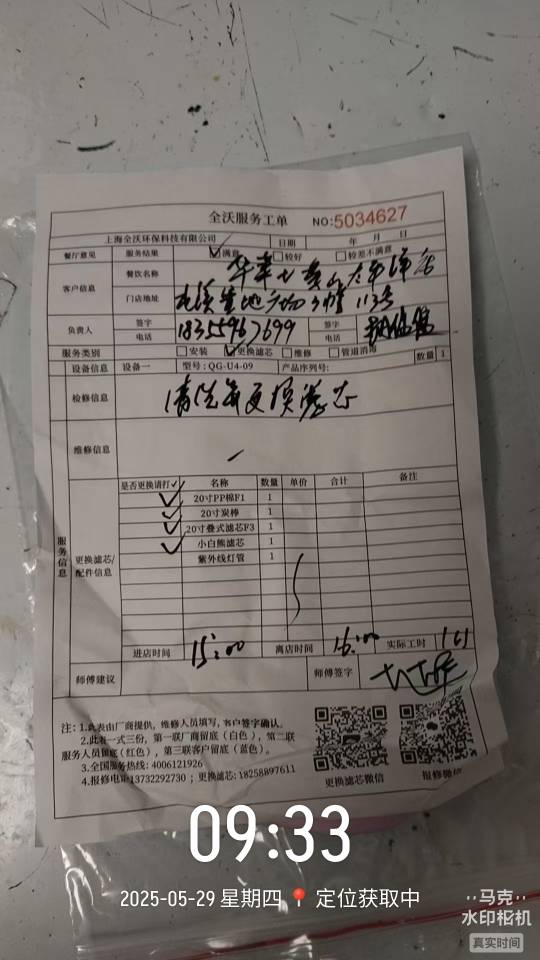 全沃服务工单 NO:5034627
上海全沃环保科技有限公司 日期 年 月 日
餐厅意见 服务结果 ☑满意 □较好 □较差不满意
客户信息 餐饮名称
门店地址 113号
负责人 签字 电话 18355967699 签字 电话
服务类别 □安装 ☑更换滤芯 □维修 □管道消毒 数量 1
设备信息 设备一 型号:QG-U4-09 产品序列号:
检修信息 清洗并更换滤芯
维修信息
服务信息
更换滤芯/配件信息
是否更换请打✓ 名称 数量 单价 合计 备注
✓ 20寸PP棉F1 1
✓ 20寸炭棒 1
✓ 20寸叠式滤芯F3 1
✓ 小白熊滤芯 1
紫外线灯管 1
进店时间 15:00 离店时间 16:00 实际工时
师傅建议 师傅签字
注:1.此表由厂商提供,维修人员填写,客户签字确认。
2.此表一式三份,第一联厂商留底(白色),第二联
服务人员留底(红色),第三联客户留底(蓝色)。
3.全国服务热线:4006121926
4.报修电话:13732292730 ; 更换滤芯:18258897611
更换滤芯微信 报修微信
09:33
2025-05-29 星期四 定位获取中
马克
水印相机
真实时间